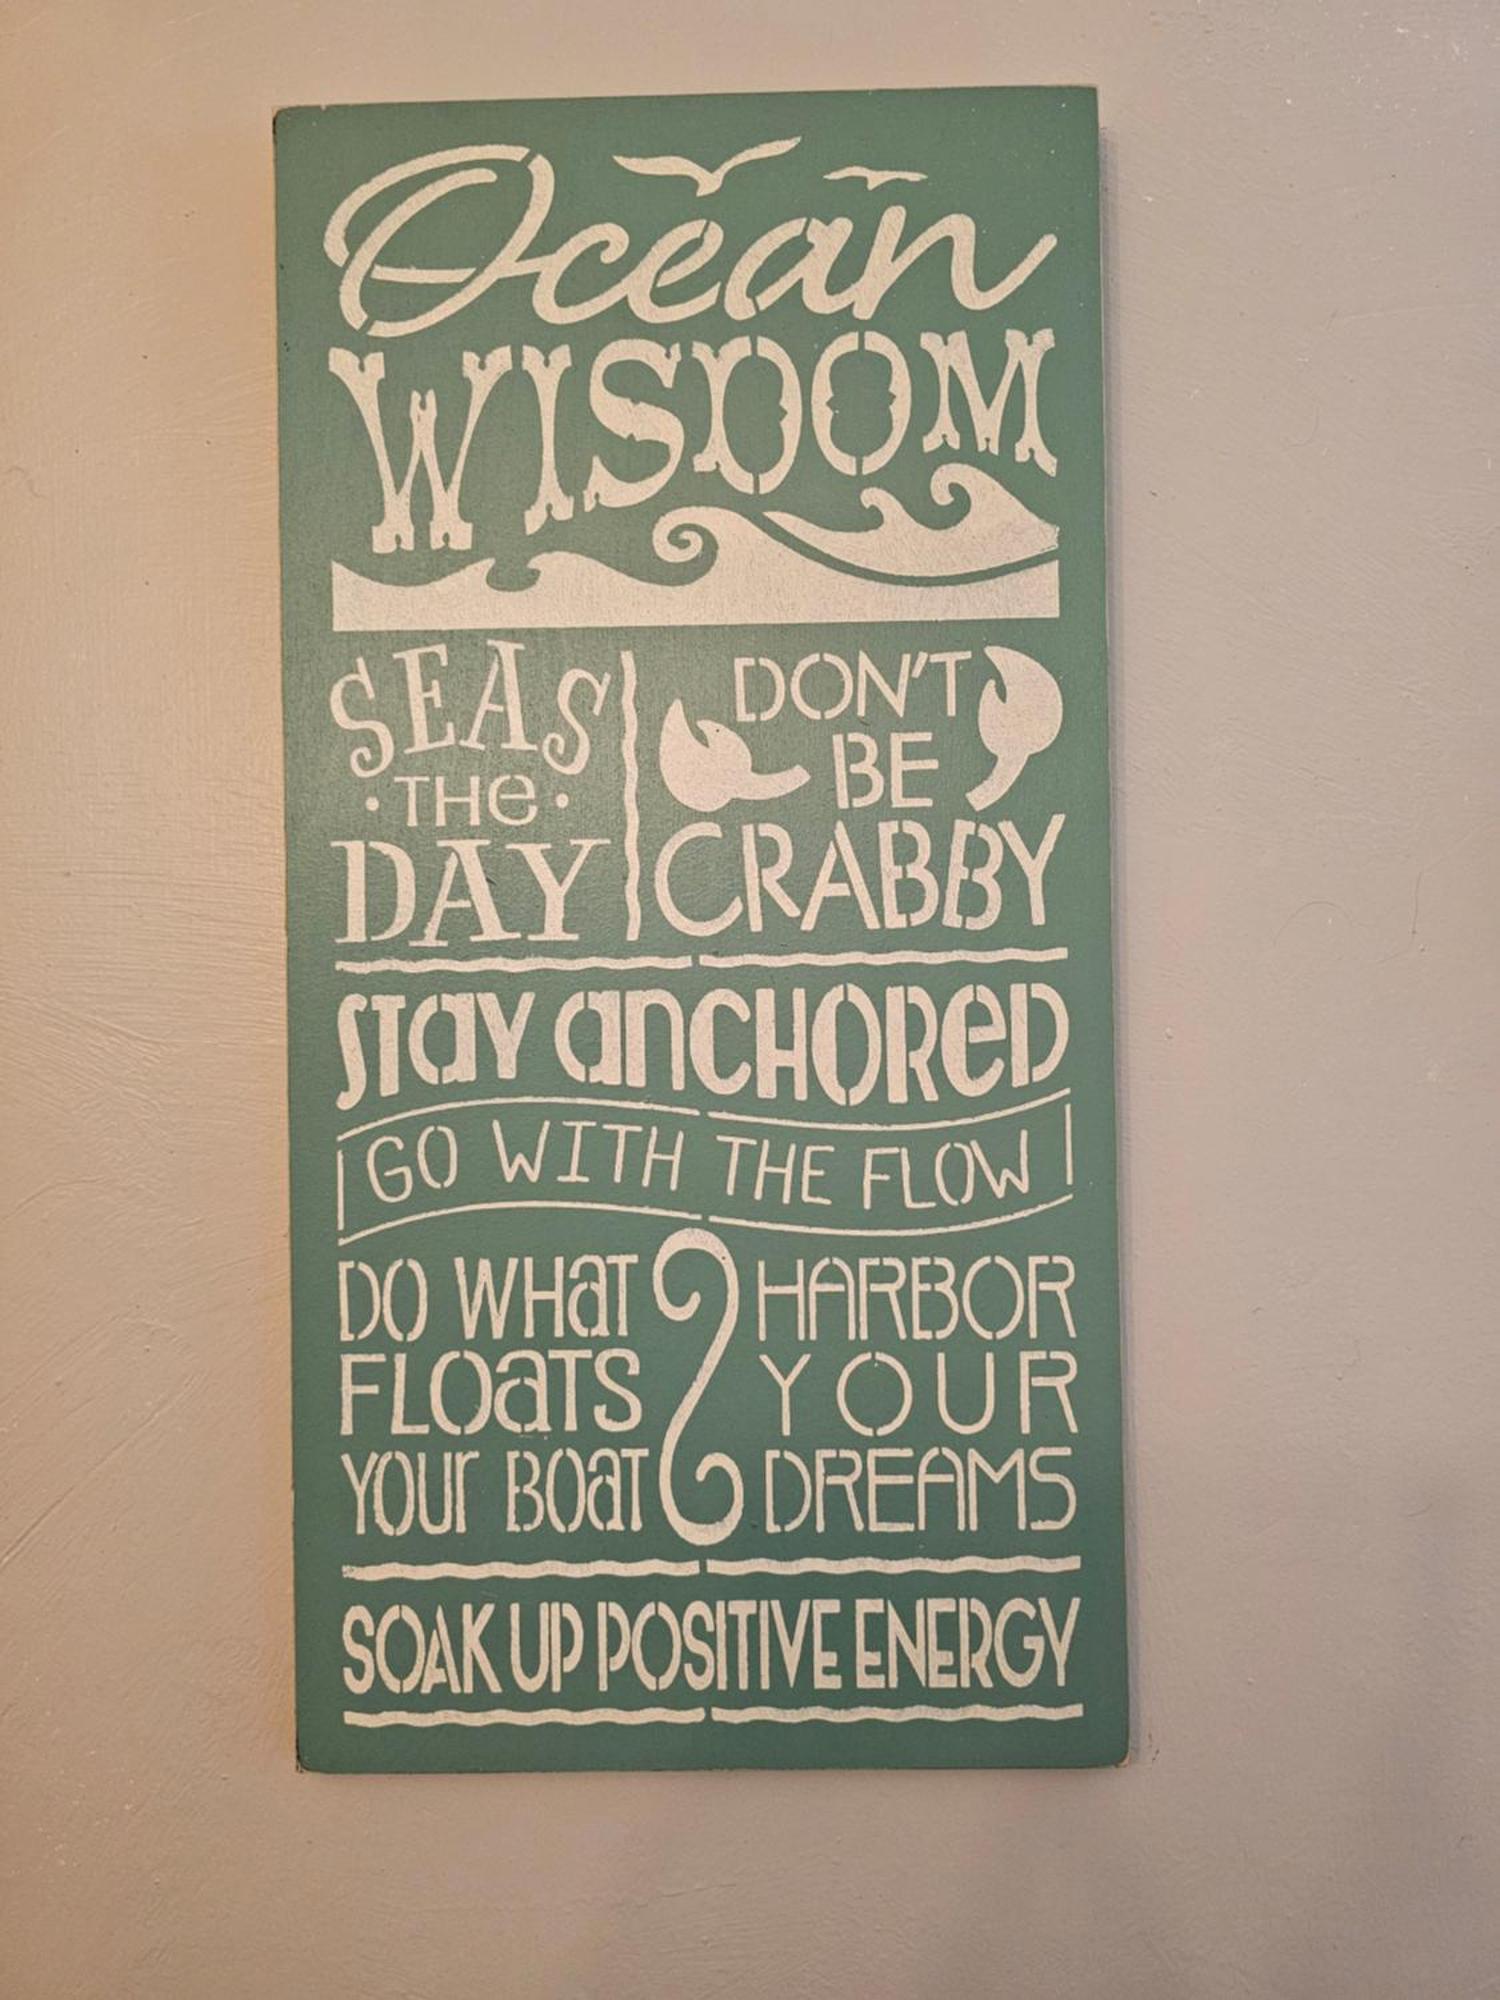 Ocean
WISDOM
SEAS
·THe·
DAY
DON'T
BE
CRABBY
STay anCHOReD
GO WITH THE FLOW
DO WHaT
FLOaTS
YOUr BOaT
HARBOR
YOUR
DREAMS
SOAK UP POSITIVE ENERGY